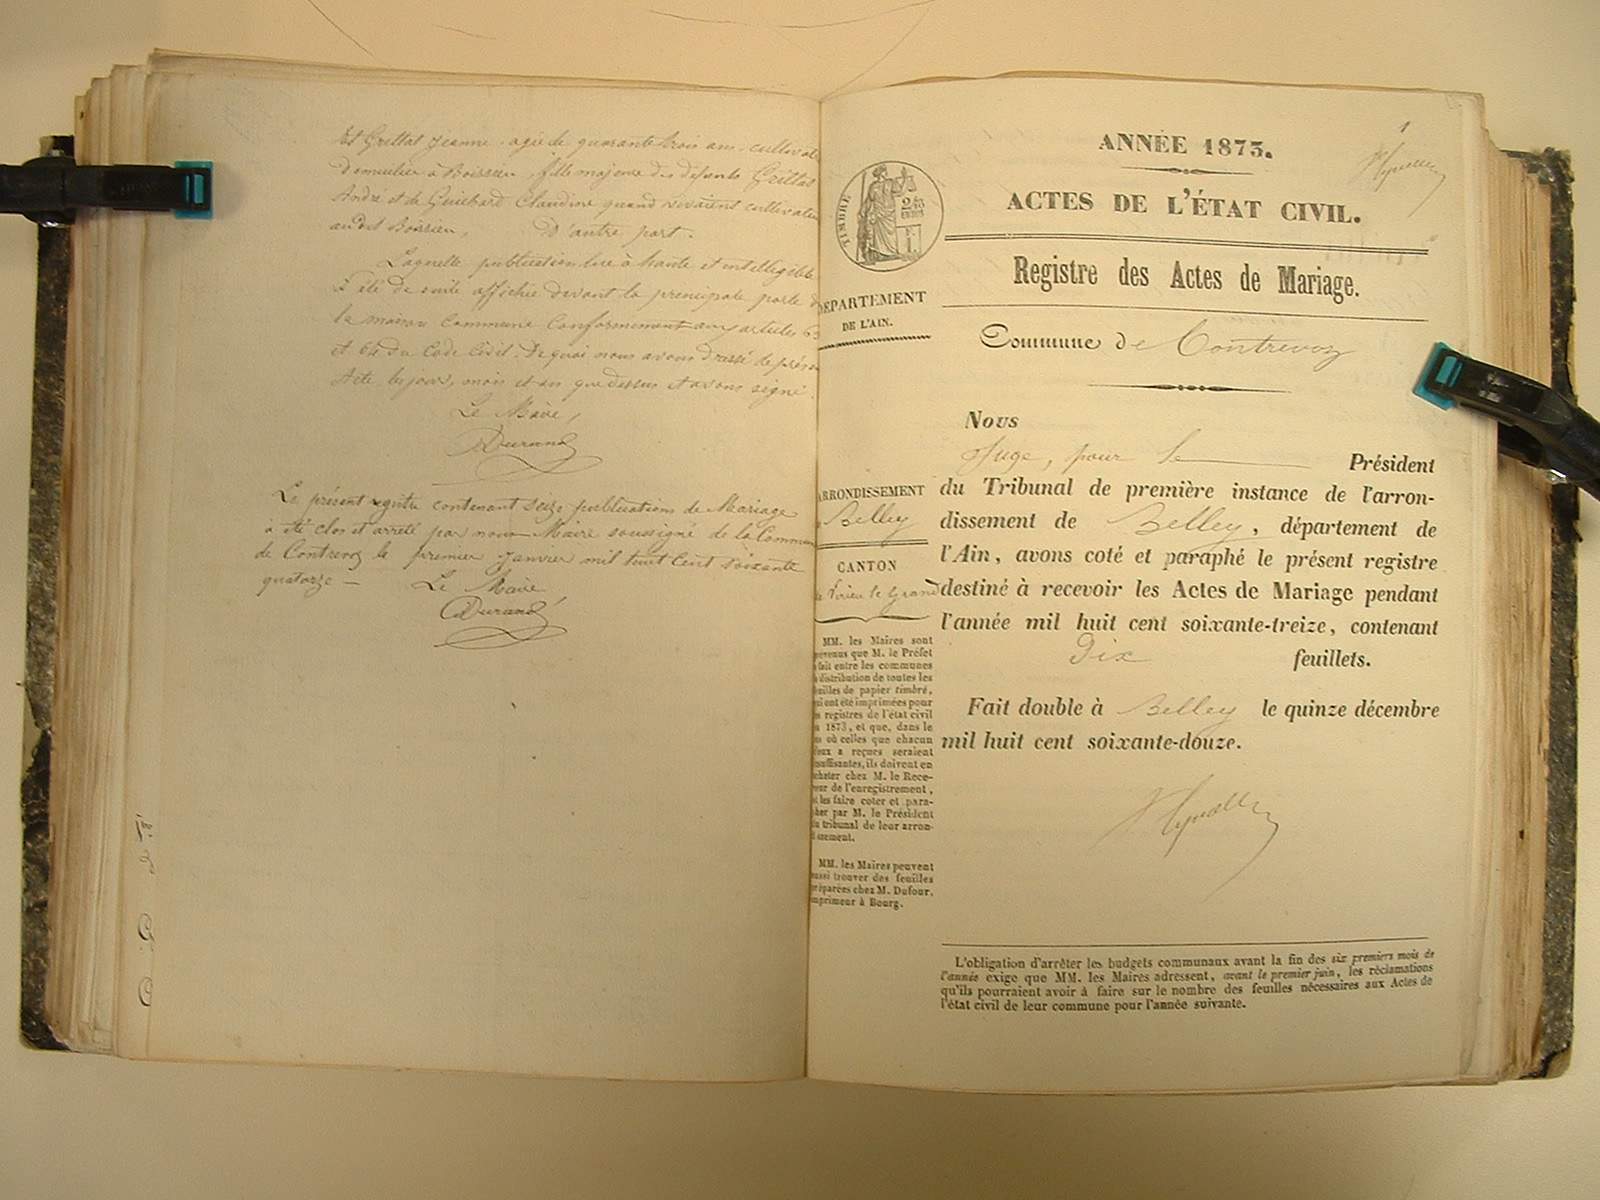 Et Grillat Jeanne âgée de quarante trois ans cultivat
Domiciliée à Boissieu, fille majeure des défunts Grillat
André et de Guichard Claudine quand vivaient cultivateu
audit Boissieu, D'autre part.
Laquelle publication lue à haute et intelligible
a été de suite affichée devant la principale porte d
la maison commune conformément aux articles 63
et 64 du Code Civil. De quoi nous avons dressé le prés
Acte les jour, mois et an que dessus et avons signé.
Le Maire,
Durand
Le présent registre contenant seize publications de Mariage
a été clos et arrêté par nous Maire soussigné de la Commun
de Contrevoz le premier Janvier mil huit cent soixante
quatorze —
Le Maire
Durand
1
ANNÉE 1873.
ACTES DE L'ÉTAT CIVIL.
Registre des Actes de Mariage.
TIMBRE
DÉPARTEMENT
DE L'AIN.
Commune de Contrevoz
Nous
Juge, pour le Président
du Tribunal de première instance de l'arron-
dissement de Belley, département de
l'Ain, avons coté et paraphé le présent registre
destiné à recevoir les Actes de Mariage pendant
l'année mil huit cent soixante-treize, contenant
Dix feuillets.
Fait double à Belley le quinze décembre
mil huit cent soixante-douze.
ARRONDISSEMENT
Belley
CANTON
de Virieu le Grand
MM. les Maires sont
évenus que M. le Préfet
fait entre les communes
distribution de toutes les
uilles de papier timbré,
ui ont été imprimées pour
s registres de l'état civil
1873, et que, dans le
s où celles que chacun
'eux a reçues seraient
nsuffisantes, ils doivent en
cheter chez M. le Rece-
eur de l'enregistrement,
t les faire coter et para-
her par M. le Président
u tribunal de leur arron-
issement.
MM. les Maires peuvent
ussi trouver des feuilles
réparées chez M. Dufour,
mprimeur à Bourg.
L'obligation d'arrêter les budgets communaux avant la fin des six premiers mois de
l'année exige que MM. les Maires adressent, avant le premier juin, les réclamations
qu'ils pourraient avoir à faire sur le nombre des feuilles nécessaires aux Actes de
l'état civil de leur commune pour l'année suivante.